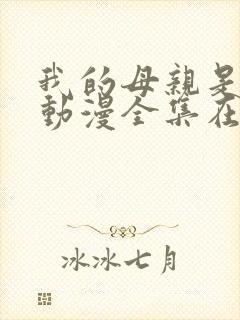 我的母親是
動漫全集在
冰冰七月